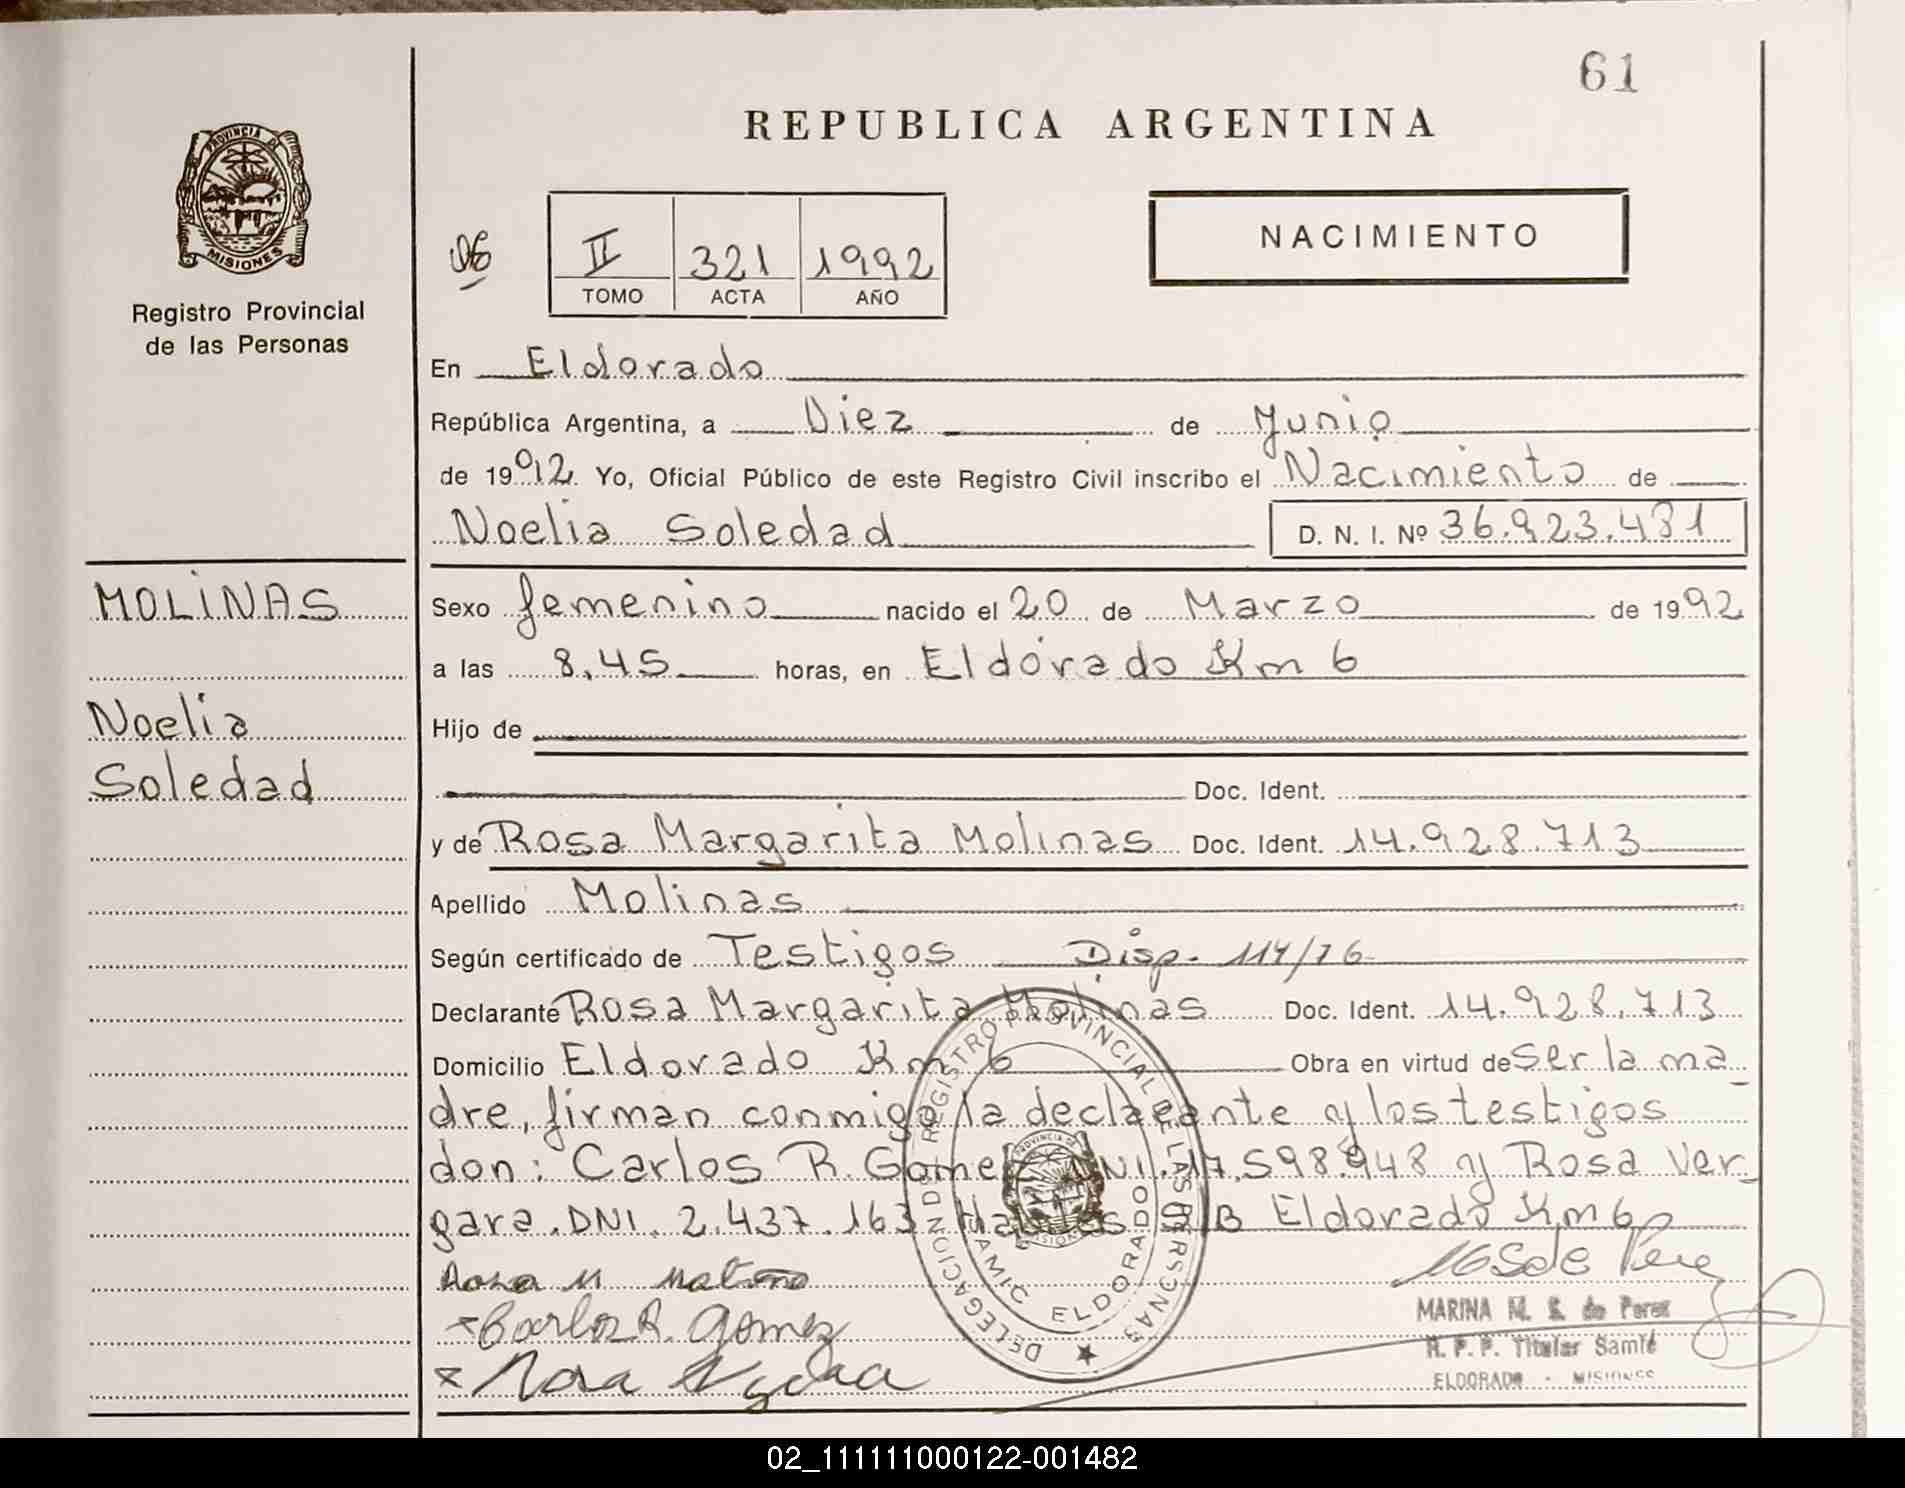 61
REPUBLICA ARGENTINA
PROVINCIA DE
MISIONES
Registro Provincial
de las Personas
II 321 1992
TOMO ACTA AÑO
NACIMIENTO
En Eldorado
República Argentina, a Diez de Junio
de 1992. Yo, Oficial Público de este Registro Civil inscribo el Nacimiento de
Noelia Soledad D. N. I. Nº 36.923.481
MOLINAS
Noelia
Soledad
Sexo femenino nacido el 20 de Marzo de 1992
a las 8,45 horas, en Eldorado Km 6
Hijo de
Doc. Ident.
y de Rosa Margarita Molinas Doc. Ident. 14.928.713
Apellido Molinas
Según certificado de Testigos Disp. 114/76
Declarante Rosa Margarita Molinas Doc. Ident. 14.928.713
Domicilio Eldorado Km 6 Obra en virtud de ser la ma_
dre, firman conmigo la declarante y los testigos
don: Carlos R. Gomez DNI. 17.598.948 y Rosa Ver_
gara. DNI. 2.437.163 Eldorado Km 6
DELEGACION DE REGISTRO PROVINCIAL DE LAS PERSONAS
SAMIC ELDORADO
Carlos R. Gomez
MARINA M. S. de Perez
R. P. P. Titular Samic
ELDORADO - MISIONES
02_111111000122-001482